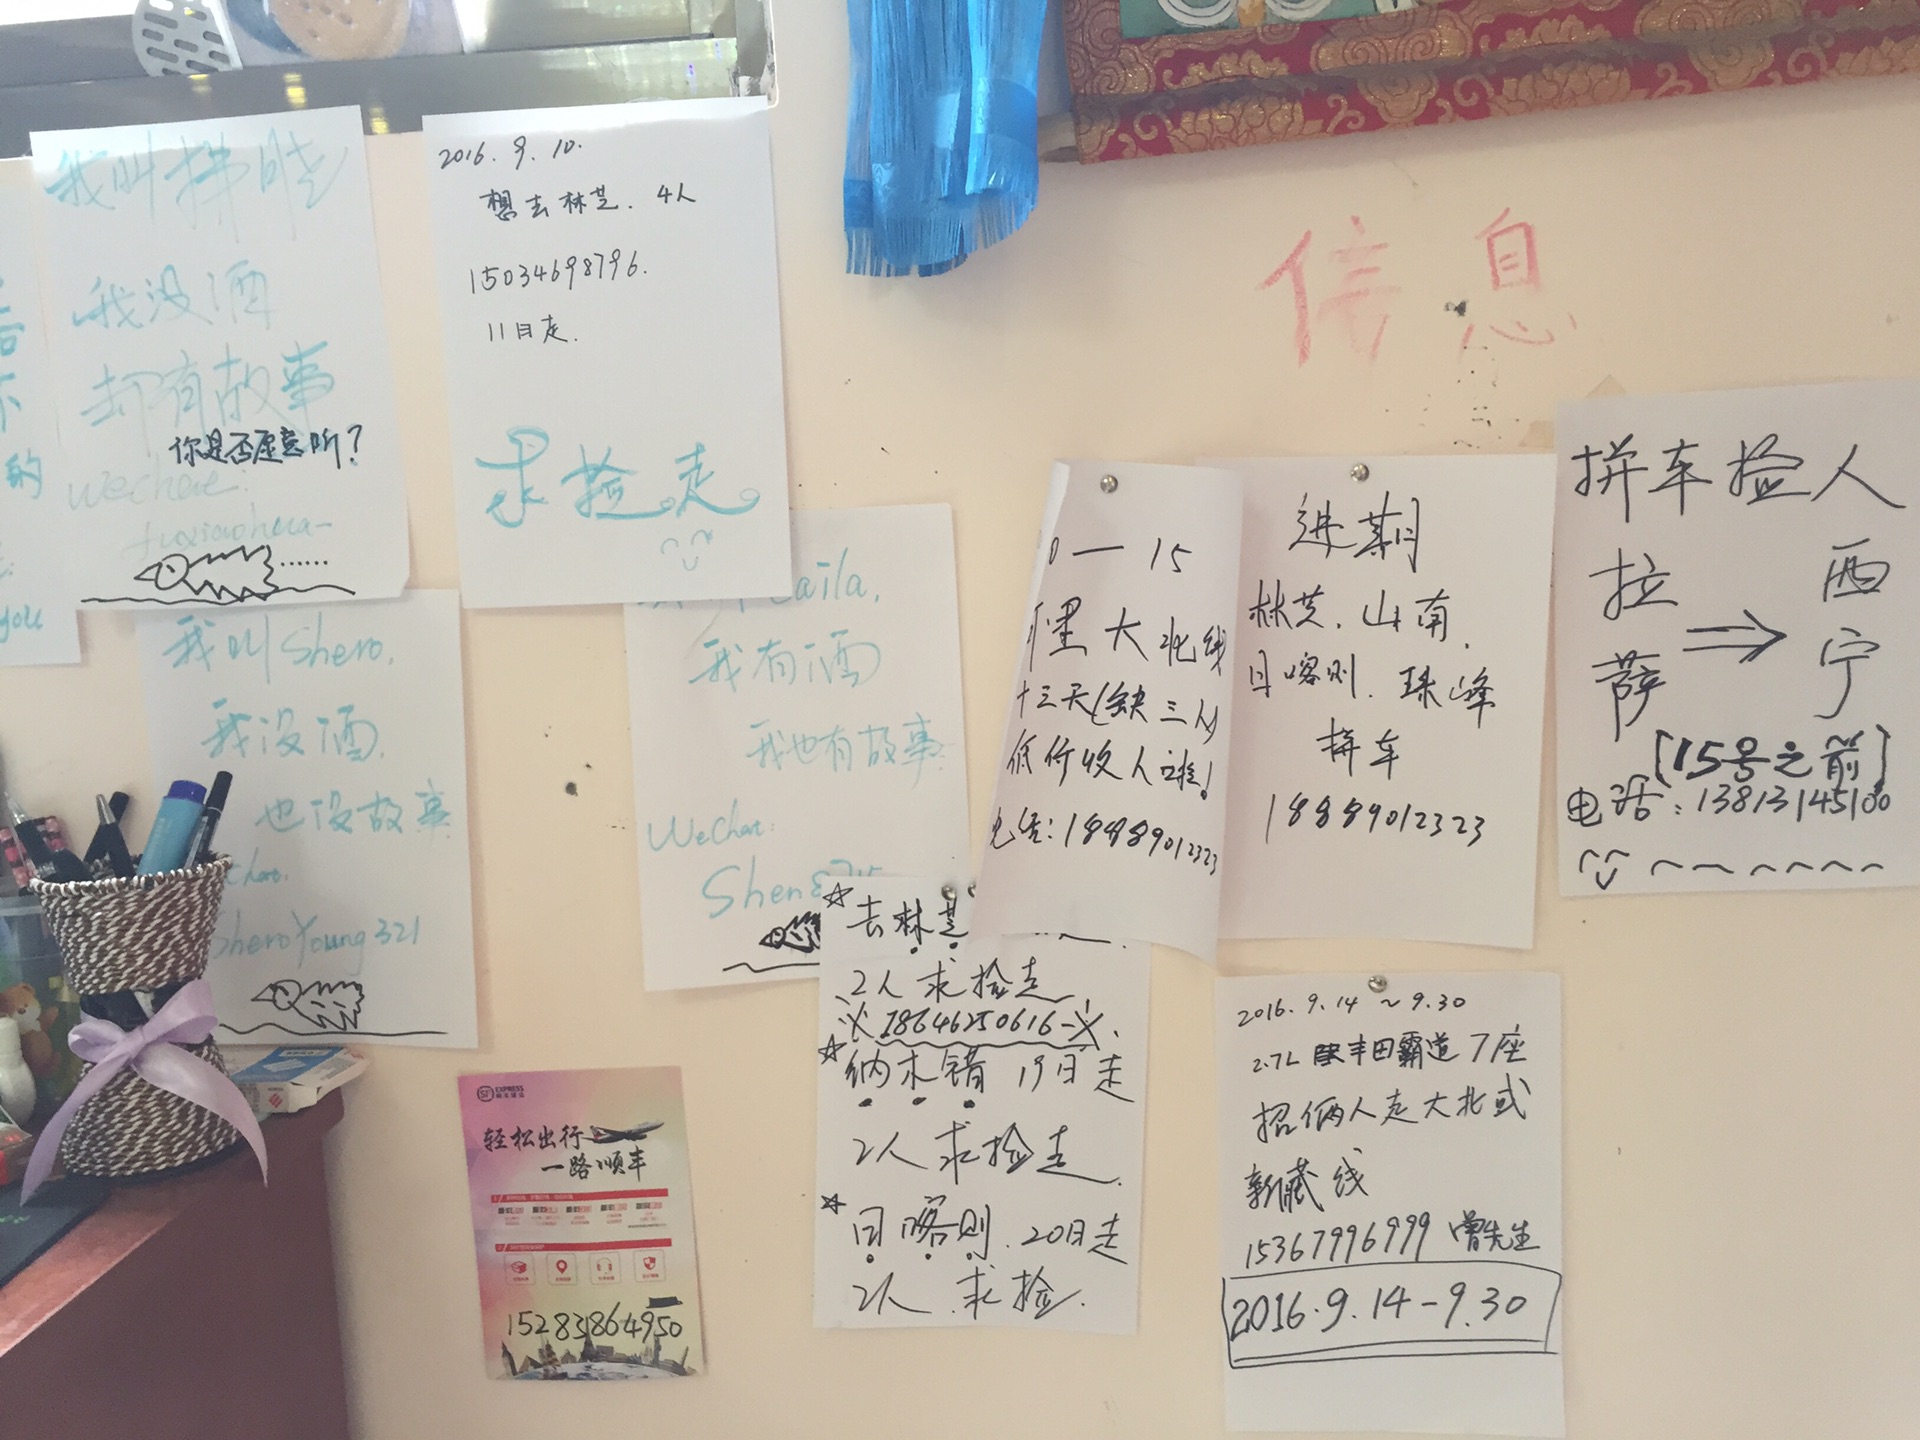 我叫拂晓
我没酒
却有故事
你是否愿意听?
wechat:
的
you
2016. 9. 10.
想去林芝. 4人
15034698796.
11日走.
求捡走
信息
我叫Shero,
我没酒,
也没故事
SheroYoung321
aila,
我有酒
我也有故事
WeChat:
— 15
大北线
十三天(缺三人)
低价收人啦!
电话:18889012323
近期
林芝. 山南.
日喀则. 珠峰
拼车
18889012323
拼车捡人
拉萨 ⇒ 西宁
[15号之前]
电话:13813145100
☆去林芝
2人求捡走
18646250616
☆纳木错 19日走
2人求捡走.
☆日喀则. 20日走
2人求捡.
2016. 9. 14 ~ 9.30
2.7L 丰田霸道7座
招俩人走大北或
新藏线
15367996999 曾先生
2016.9.14-9.30
SF EXPRESS
轻松出行
一路顺丰
15283864950